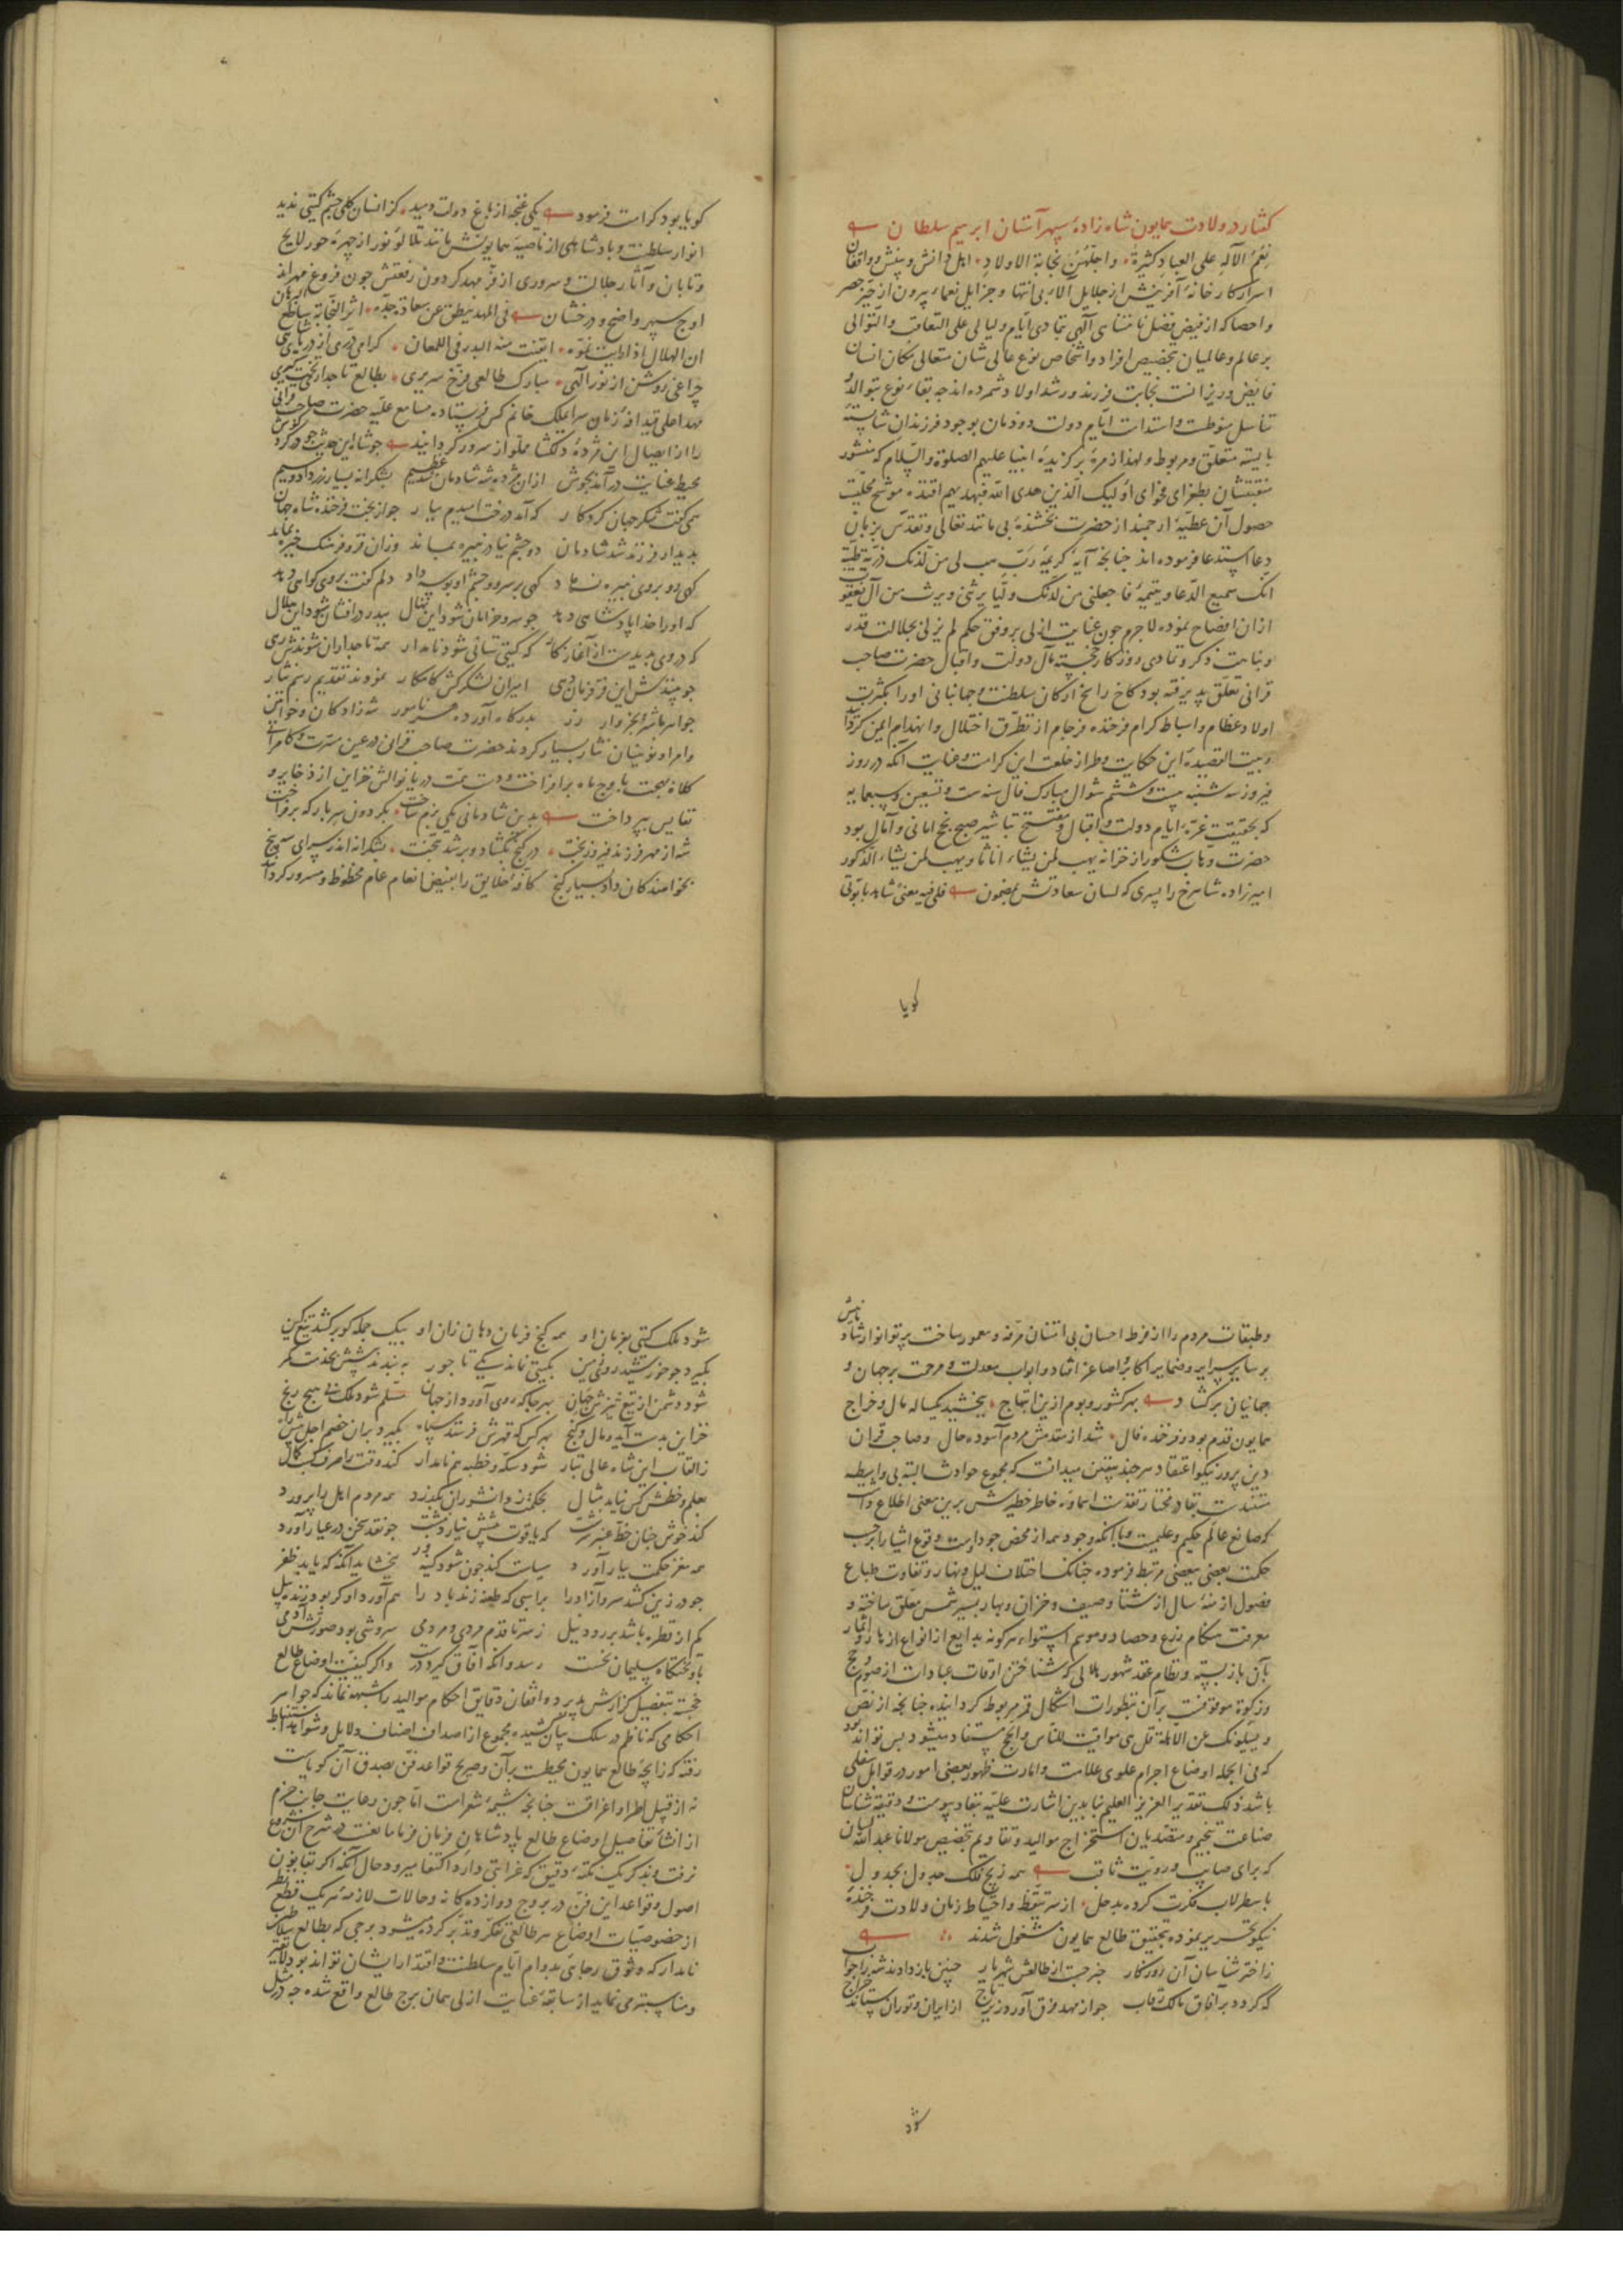 گفتار در ولادت همایون شاه زادهٔ سپهر آستان ابرهیم سلطان
نعم الآله علی العباد کثیرة واجلهن نجابة الاولاد اهل دانش و بینش و واقفان
اسرار کارخانهٔ آفرینش از جلایل آلاء بی انتها و جزایل نعماء بیرون از حیز حصر
و احصا که از فیض فضل نامتناهی الهی بتمادی ایام و لیالی علی التعاقب و التوالی
بر عالم و عالمیان بتخصیص افراد و اشخاص نوع عالی شان متعالی مکان انسان
فایض و ریزانست نجابت فرزند و رشد اولاد شمرده اند چه بقاء نوع بتوالد و
تناسل منوطست و استدامت ایام دولت دودمان بوجود فرزندان شایستهٔ
بایسته متعلق و مربوط و لهذا زمرهٔ برگزیدهٔ انبیا علیهم الصلوة والسلام که منشور
منقبتشان بطغرای فحوای اولیک الذین هدی الله فبهدیهم اقتده موشح محلیست
حصول آن عطیهٔ ارجمند از حضرت بخشندهٔ بی مانند تعالی و تقدس بزبان
دعا استدعا فرموده اند چنانچه آیهٔ کریمهٔ رب هب لی من لدنک ذریة طیبة
انک سمیع الدعا و یتیمهٔ فاجعلنی من لدنک ولیا یرثنی و یرث من آل یعقوب
از ان افصاح نموده لاجرم چون عنایت ازلی بر وفق حکم لم یزلی بجلالت قدر
و نباهت ذکر و تمادی روزگار خجسته مآل دولت و اقبال حضرت صاحب
قرانی تعلق پذیرفته بود کاخ راسخ ارکان سلطنت و جهانبانی او را بکثرت
اولاد عظام و اسباط کرام فرخنده فرجام از تطرق اختلال و انهدام ایمن گردانید
و بیت القصیدهٔ این حکایت و طراز خلعت این کرامت و عنایت آنکه در روز
فیروز سه شنبه بیست و ششم شوال مبارک فال سنه ست و تسعین و سبعمایه
که بحقیقت غرهٔ ایام دولت و اقبال و مفتتح تباشیر صبح نجح امانی و آمال بود
حضرت وهاب شکور از خزانهٔ یهب لمن یشاء اناثا و یهب لمن یشاء الذکور
امیرزاده شاهرخ را پسری که لسان سعادتش بمضمون فلی فیه معنی شاهد بابوتی
گویا
گویا بود کرامت فرمود یکی غنچه از باغ دولت دمید کز انسان گلی چشم گیتی ندید
انوار سلطنت و پادشاهی از ناصیهٔ همایونش مانند تلألؤ نور از چهرهٔ حور لایح
و تابان و آثار جلالت و سروری از فر مهد گردون رفعتش چون فروغ مهر از
اوج سپهر واضح و درخشان فی المهد ینطق عن سعادة جده اثر النجابة ساطع البرهان
ان الهلال اذا رایت نموه ایقنت منه البدر فی اللمعان گرامی دری از دریای شاهی
چراغی روشن از نور الهی مبارک طالعی فرخ سریری بطالع تاجداری تخت گیری
مهد اعلی قیدافهٔ زمان سرای ملک خانم کس فرستاده مسامع علیهٔ حضرت صاحب قرانی
را از ایصال این مژدهٔ دلگشا مملو از سرور گردانید چو شاه این حدیث خوش در گوش کرد
محیط عنایت در آمد بجوش از ان مژده شد شادمان عظیم بشکرانه بسیار زر داد و سیم
همی گفت شکر جهان کردگار که آمد درخت امیدم ببار جو از بخت فرخنده شاه جهان
بدیدار فرزند شد شادمان دو چشم نیا در نبیره بماند وزان فر و فرهنگ خیره بماند
گهی رو بروی نبیره نهاد گهی بر سر و چشم او بوسه داد دلم گفت بروی گواهی دهد
که او را خدا پادشاهی دهد چو سرو خرامان شود این نهال ببدر درافشان شود این هلال
که در وی پدیدست از آغاز کار که گیتی ستانی شود نامدار همهٔ تاجداران شوندش رهی
چو بینندش این فر و زیان دهی امیران لشکرکش کامکار نمودند تقدیم رسم نثار
جواهر باشتر بخروار زر بدرگاه آورده هر نامور شه زادگان و خواتین
و امرا و نوینان نثار بسیار کردند حضرت صاحب قرانی در عین مسرت و کامرانی
کلاه بهجت باوج ماه برافراخت و دست همت دریا نوالش خزاین از ذخایر و
نفایس بپرداخت بدین شادمانی یکی بزم ساخت بگردون سر بارگه برفراخت
شه از مهر فرزند فیروزبخت در گنج بگشاد و بر شد بتخت بشکرانه اندر سرای سپنج
بخواهندگان داد بسیار گنج کافهٔ خلایق را بفیض انعام عام محظوظ و مسرور گردانید
و طبقات مردم را از فرط احسان بی امتنان مرفه و معمور ساخت پرتو انوار شادمانیش
بر سایر سرایر و ضمایر اکابر و اصاغر افتاد و ابواب معدلت و مرحمت بر جهان و
جهانیان برگشاد بهر کشور و بوم ازین ابتهاج ببخشید یکساله مال و خراج
همایون قدم بود و فرخنده فال شد از مقدمش مردم آسوده حال و صاحب قران
دین پرور نیکو اعتقاد هر چند بیقین میدانست که مجموع حوادث البته بی واسطه
مستندست بقادر مختار تقدست اسماؤه خاطر خطیرش برین معنی اطلاع داشت
که صانع عالم حکیم و علیمست و باآنکه وجود همه از محض جود اوست وقوع اشیا را بر حسب
حکمت بعضی ببعضی مرتبط فرموده چنانکه اختلاف لیل و نهار و تفاوت طباع
فصول ازمنهٔ سال از شتا و صیف و خزان و بهار بسیر شمس معلق ساخته و
معرفت هنگام زرع و حصاد و موسم استواء هر گونه بدایع از انواع ازهار و اثمار
بآن باز بسته و نظام عقد شهور هلالی که شناختن اوقات عبادات از صوم و حج
و زکوة موقوفست بر آن بتطورات اشکال قمر مربوط گردانیده چنانچه از نص
و یسئلونک عن الاهلة قل هی مواقیت للناس و الحج مستفاد میشود پس تواند بود
که فی الجمله اوضاع اجرام علوی علامت و امارت ظهور بعضی امور در قوابل سفلی
باشد ذلک تقدیر العزیز العلیم بنابدین اشارت علیه بنفاذ پیوست و دقیقه شناسان
صناعت تنجیم و متصدیان استخراج موالید و تقاویم بتخصیص مولانا عبدالله لسان
که برای صایب و رویت ثاقب همه زیج فلک جدول بجدول
باسطرلاب فکرت کرده بد حل از سر تیقظ و احتیاط زمان ولادت فرخنده
نیکو تحریر نموده بتحقیق طالع همایون مشغول شدند
ز اختر شناسان آن روزگار خبر جست از طالعش شهریار چنین باز دادند شه را جواب
که گردد بر آفاق مالک رقاب چو از مهد فرق آورد زیر تاج از ایران و توران ستاند خراج
شود
شود ملک گیتی بفرمان او همه گنج فرمان دهان زان او بیک حمله کو بر کشد تیغ کین
بگیرد چو خورشید روی زمین بگیتی نماند یکی تاجور که نبندد به پیشش بخدمت کمر
شود دشمن از تیغ تیزش جهان بهر جا که روی آورد از جهان مسلم شود ملک بی هیچ رنج
خزاین بدست آید و مال و گنج بهر کس که قهرش فرستد سپاه بگیرد بران خصم اجل پیش راه
ز القاب این شاه عالی تبار شود سکه و خطبه هم نامدار کند وقت را صرف کسب کمال
بعلم و خطش کس نیاید مثال بحکمت ز دانشوران بگذرد همه مردم اهل را پرورد
کند خوش چنان خط عنبر سرشت که یاقوت پیشش نیارد نبشت چو نقد سخن در عیار آورد
همه مغز حکمت ببار آورد سیاست کند چون شود کینه ور ببخشاید آنگه که یابد ظفر
چو در زین کشد سرو آزاد را بر اسبی که طعنه زند باد را هم آورد او گر بود ژنده پیل
کم از قطره باشد بر رود نیل ز سر تا قدم مردمی و مردمی سروشی بود صورتش آدمی
باو تختگاه سلیمان نخست رسد وانگه آفاق گیرد درست و اگر کیفیت اوضاع طالع
خجسته بتفصیل گزارش پذیرد واقفان دقایق احکام موالید را شبهه نماند که جواهر
احکامی که ناظم در سلک بیان کشیده مجموع از اصداف اصناف دلایل و شواهد استنباط
رفته که زایچهٔ طالع همایون محیطست بر آن و صریح قواعد فن بصدق آن گویاست
نه از قبیل اطرا و اغراقست چنانچه شیمهٔ شعراست اما چون رعایت جانب حزم
از انشاء تفاصیل اوضاع طالع پادشاهان فرمان فرما مانعست در شرح آن شروع
نرفت و بذکر یک نکتهٔ دقیق که غرابتی دارد اکتفا میرود حال آنکه اگر بقانون
اصول و قواعد این فن در بروج دوازده گانه و حالات لازمهٔ هر یک قطع نظر
از خصوصیات اوضاع هر طالعی تفکر و تدبر کرده میشود برجی که بطالع سلاطین
نامدار که وثوق رجا بدوام ایام سلطنت و اقتدار ایشان تواند بود لایق
و مناسبتر می نماید از سابقهٔ عنایت ازلی همان برج طالع واقع شده چه در مثل